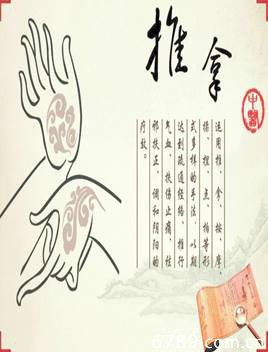 推拿
中醫
运用推、拿、按、摩、
揉、捏、点、拍等形
式多样的手法，以期
达到疏通经络、推行
气血、扶伤止痛、祛
邪扶正、调和阴阳的
疗效。
6789.com.cn